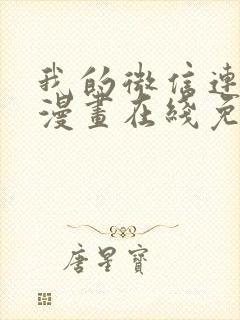 我的微信連
漫畫在綫免
唐星寶